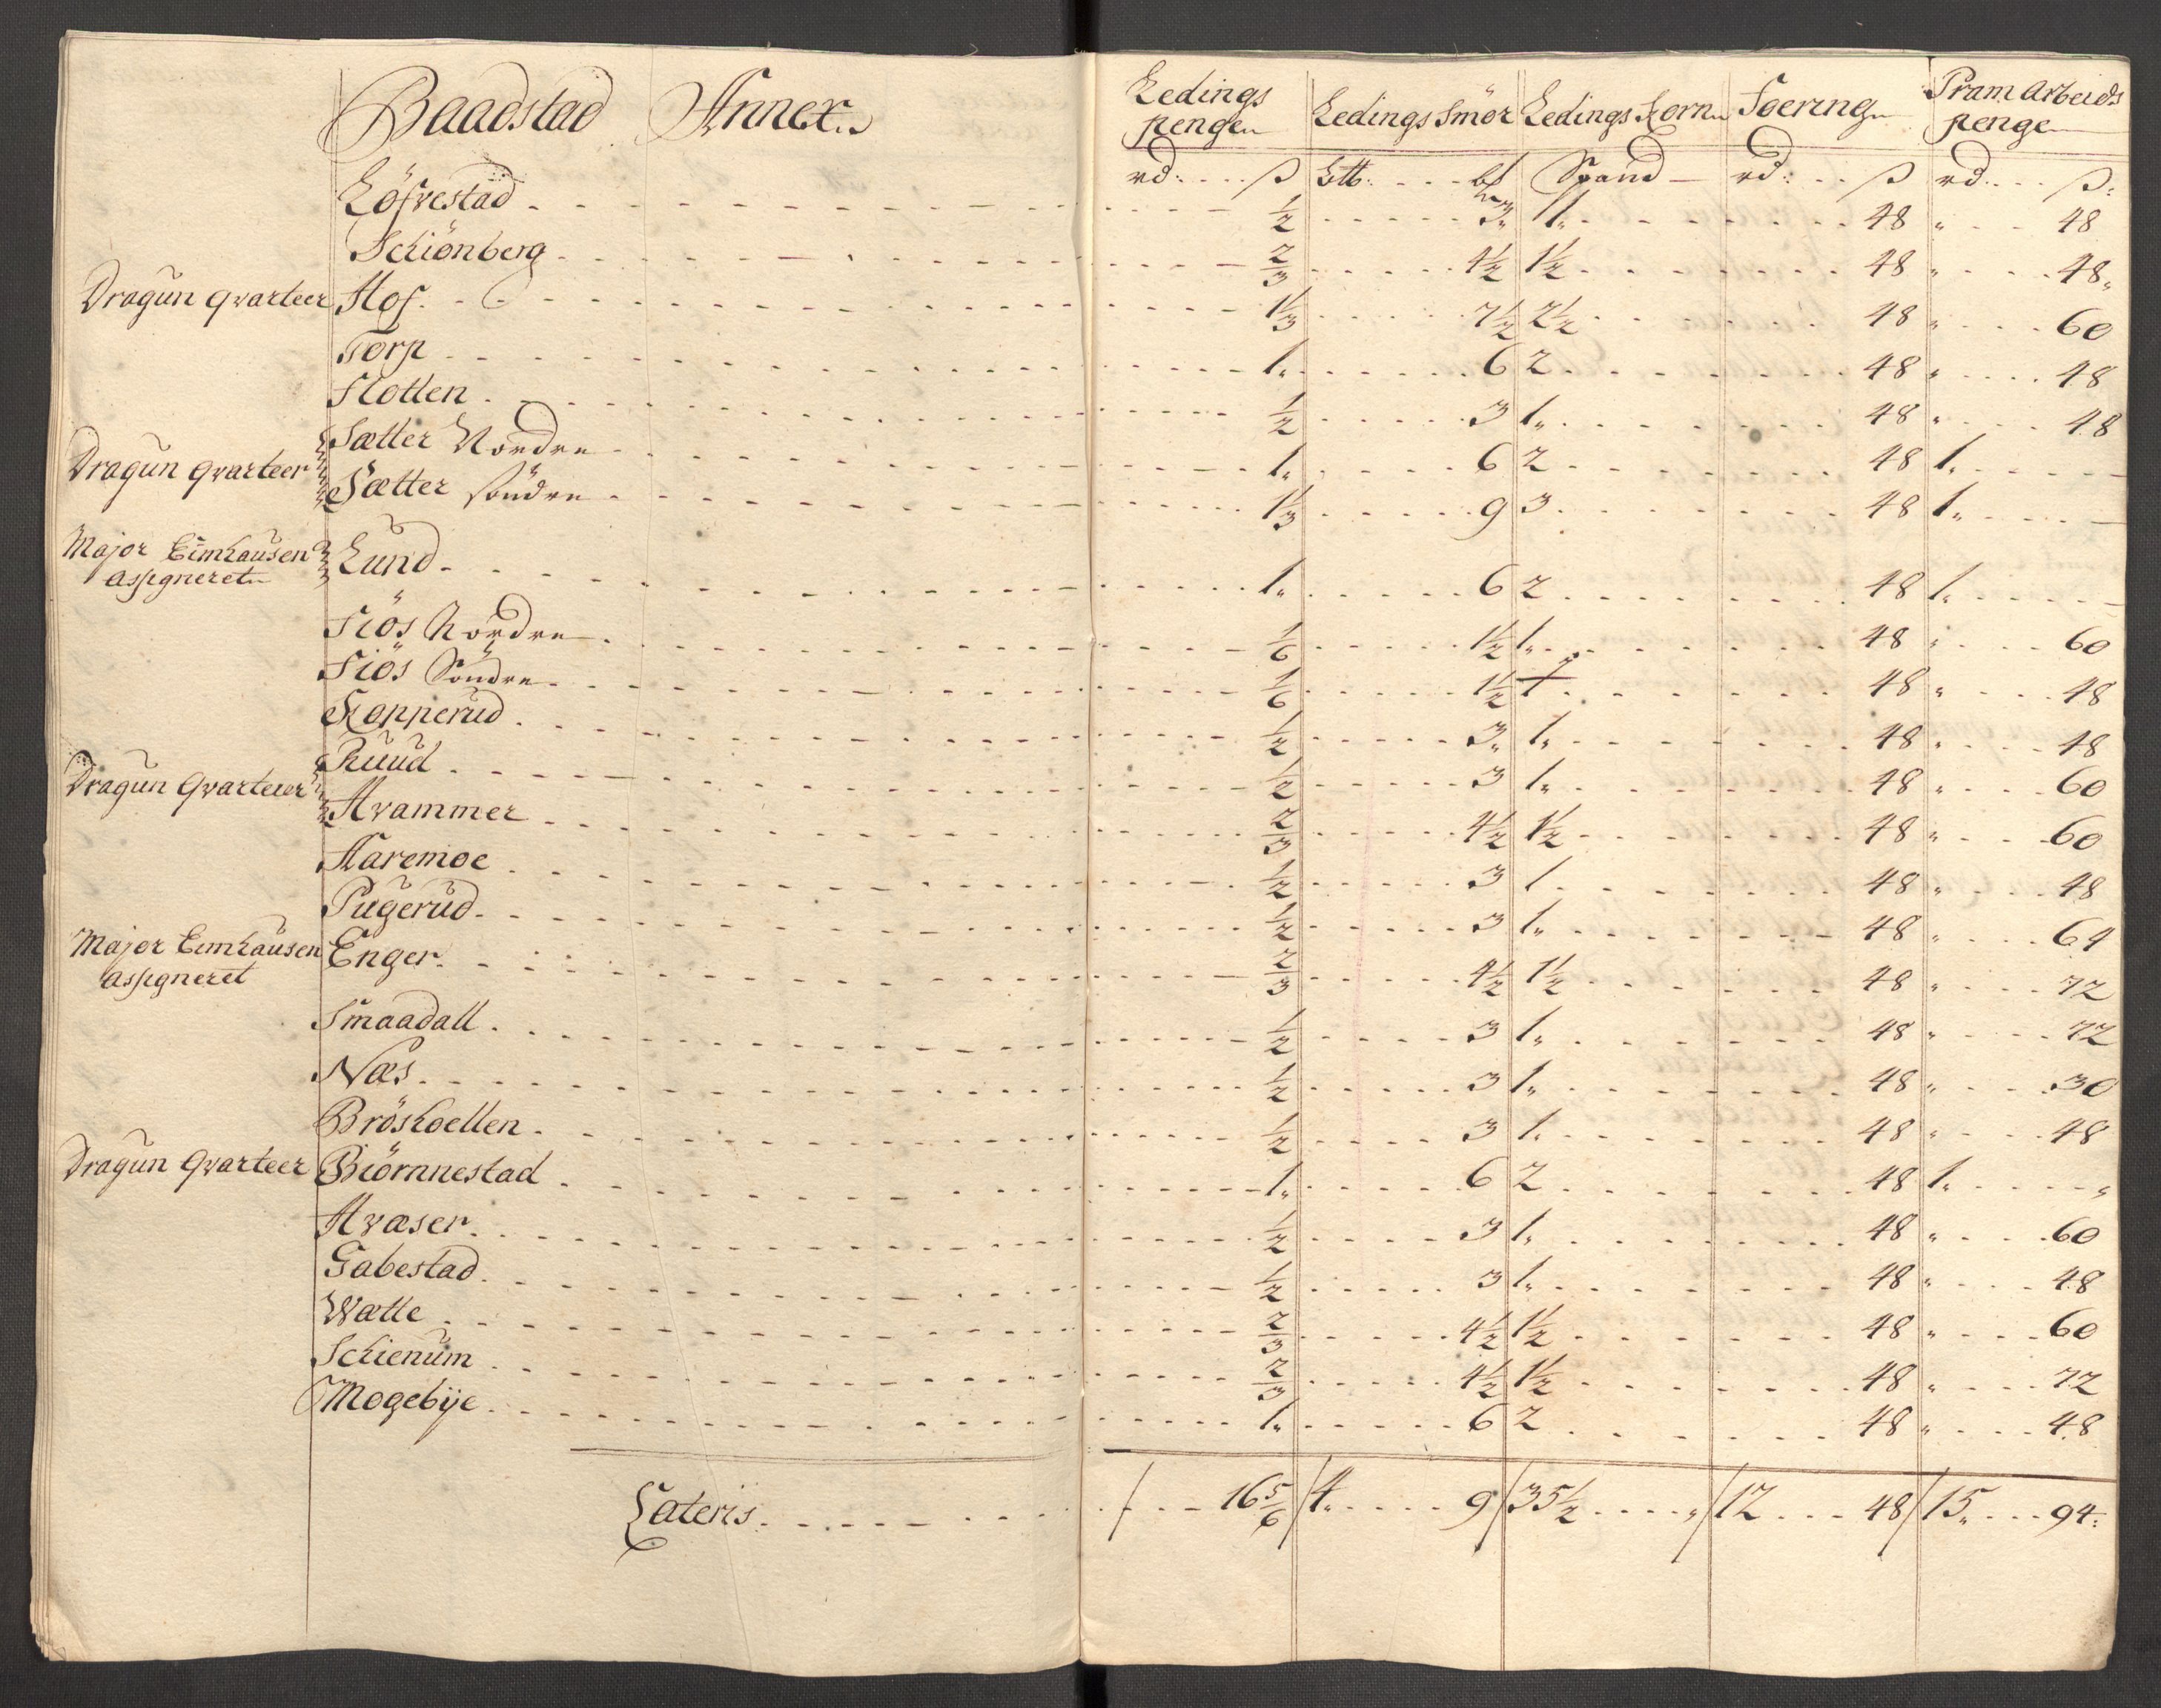 Baadstad Annex.
Ledings penge Ledings Smör Ledings Korn Foering Pram Arbeids penge
rd: ß Lt: Spand rd: ß rd. ß:
Löfvestad ½ 3„ 1„ 48 „ 48
Schiönberg ⅔ 4½ 1½ 48 „ 48„
Dragun qvarteer Hof 1⅓ 7½ 2½ 48 „ 60
Torp 1„ 6 2 48 „ 48
Slotten ½ 3 1„ 48 „ 48
Sætter Nordre 1„ 6 2 48 1„
Dragun qvarteer Sætter söndre 1⅓ 9 3 48 1„
Major Eimhausen Lund 1„ 6 2 48 1„
assigneret
Siös Nordre ⅙ 1½ 1„ 48 „ 60
Siös Söndre ⅙ 1½ 1 48 „ 48
Kopperud ½ 3„ 1„ 48 „ 48
Ruud ½ 3 1„ 48 „ 60
Dragun Qvarteer Hvammer ⅔ 4½ 1½ 48 „ 60
Haremoe ½ 3 1 48 „ 48
Pugerud ½ 3 1„ 48 „ 64
Major Eimhausen Enger ⅔ 4½ 1½ 48 „ 72
assigneret
Smaadall ½ 3 1„ 48 „ 72
Næs ½ 3 1„ 48 „ 30
Bröskoellen ½ 3 1„ 48 „ 48
Dragun Qvarteer Biörnnestad 1„ 6 2 48 1„ „
Hvæser ½ 3 1„ 48 „ 60
Gabestad ½ 3 1„ 48 „ 48
Wætle ⅔ 4½ 1½ 48 „ 60
Schienum ⅔ 4½ 1½ 48 „ 72
Mogebÿe 1„ 6 2 48 „ 48
Lateris 16⅚ 4„ 9 35½ „ 12 48 15„ 94: